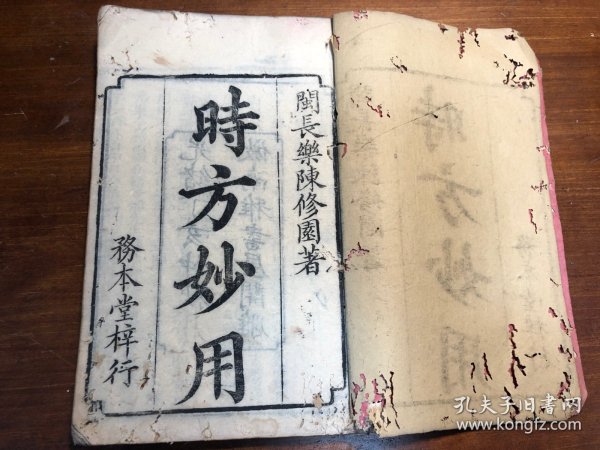 閩長樂陳修園著
時方妙用
務本堂梓行
孔夫子旧書网
www.kongfz.com